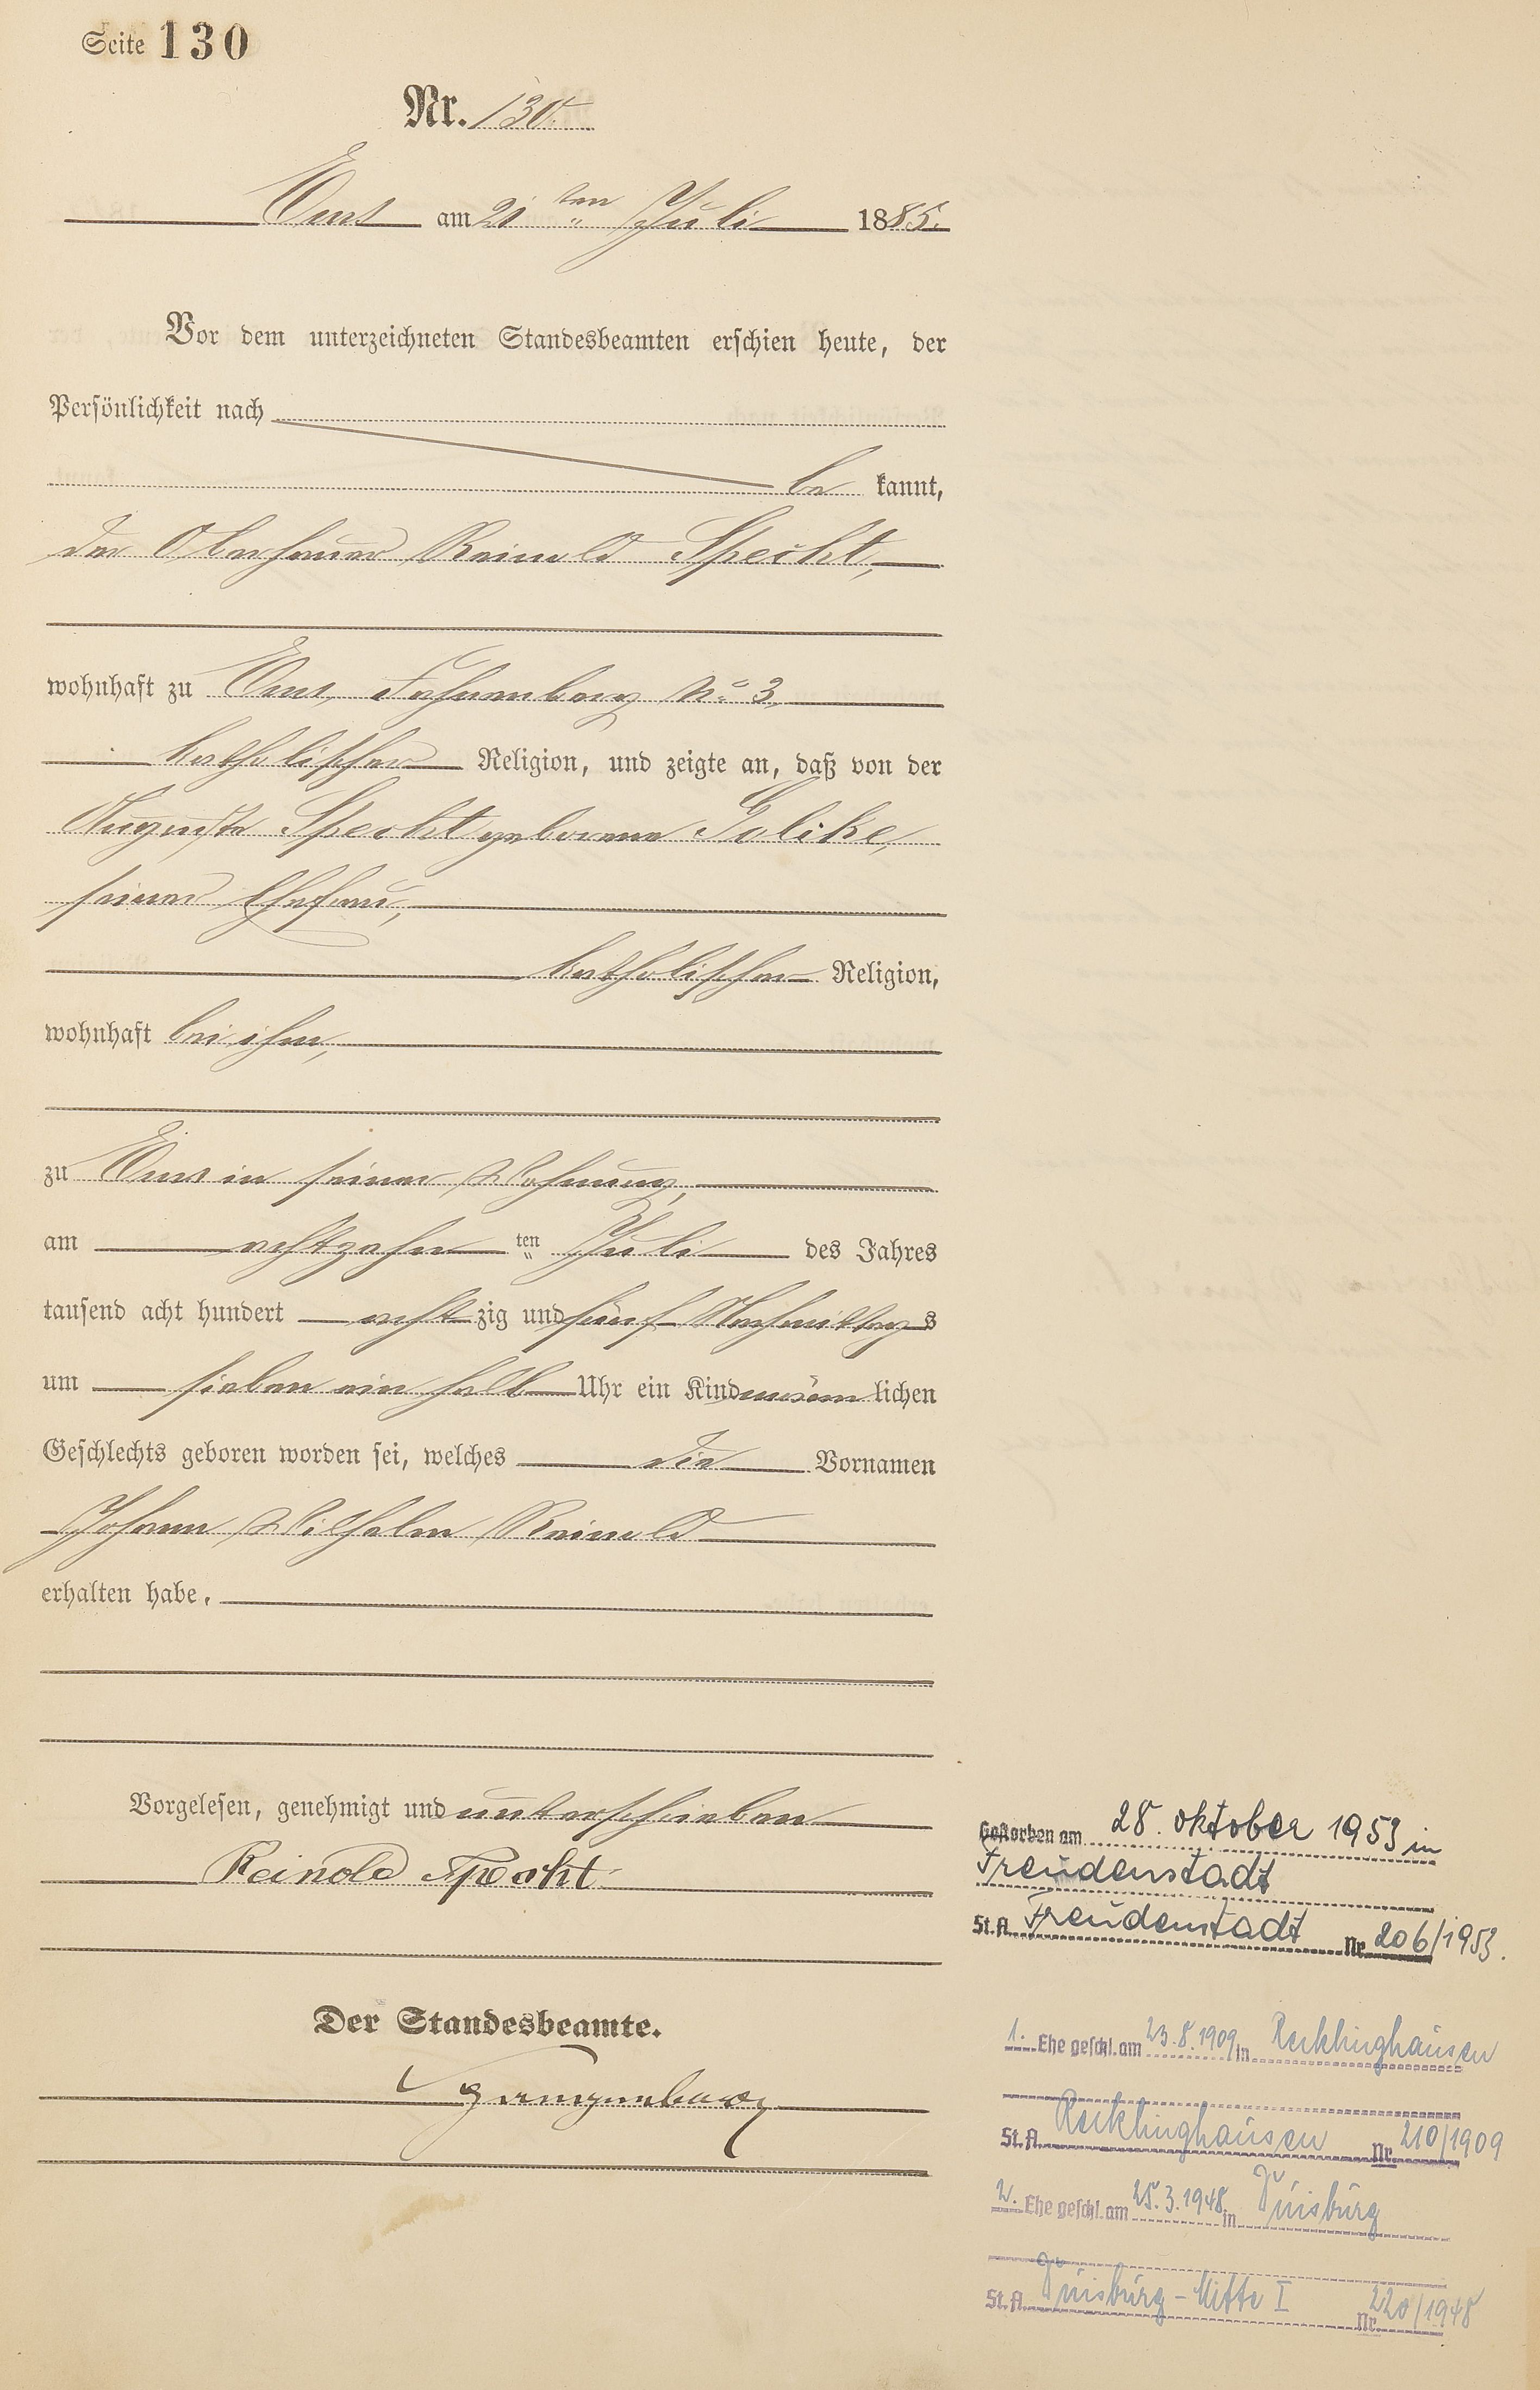 Seite 130
Nr. 130.
Ems am 21ten Juli 1885.
Vor dem unterzeichneten Standesbeamten erschien heute, der
Persönlichkeit nach
be kannt,
der Obersteiger Reinold Specht,
wohnhaft zu Ems, Fahnenberg No 3,
katholischer Religion, und zeigte an, daß von der
Auguste Specht geborene Golike,
seiner Ehefrau,
katholischer Religion,
wohnhaft bei ihm,
zu Ems in seiner Wohnung,
am achtzehn ten Juli des Jahres
tausend acht hundert acht zig und fünf Nachmittags
um sieben ein halb Uhr ein Kind männ lichen
Geschlechts geboren worden sei, welches die Vornamen
Johann Wilhelm Reinold
erhalten habe.
Vorgelesen, genehmigt und unterschrieben
Reinold Specht
Der Standesbeamte.
Gestorben am 28. oktober 1953 in
Freudenstadt
St. A. Freudenstadt Nr. 206/1953.
1. Ehe geschl. am 23.8.1909 in Recklinghausen
St. A. Recklinghausen Nr. 210/1909
2. Ehe geschl. am 25.3.1948 in Duisburg
St. A. Duisburg-Mitte I Nr. 220/1948